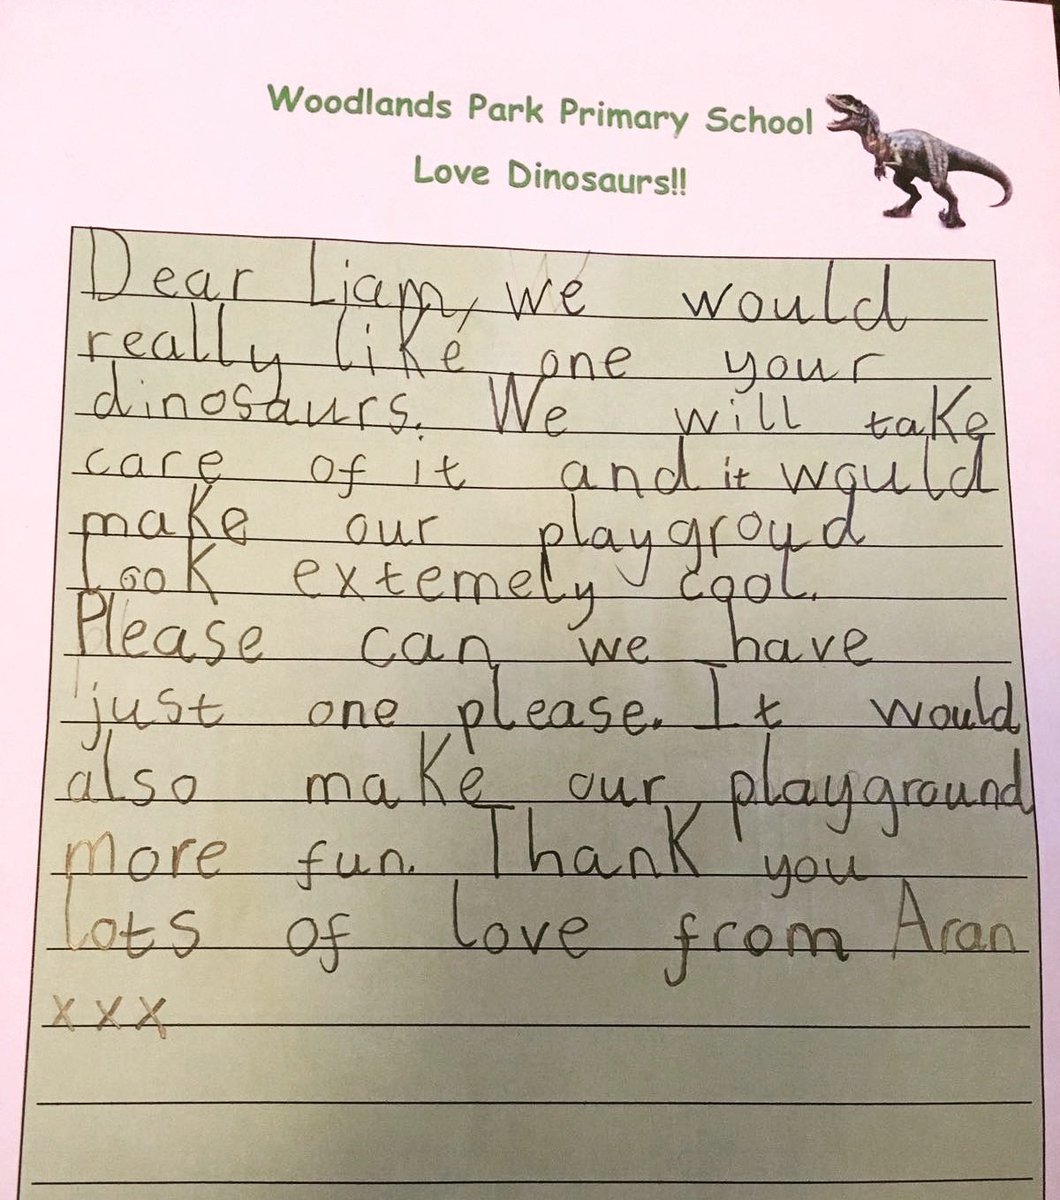 Woodlands Park Primary School
Love Dinosaurs!!
Dear Liam, we would
really like one your
dinosaurs. We will take
care of it and it would
make our playgroud
look extemely cool.
Please can we have
just one please. It would
also make our playground
more fun. Thank you
lots of love from Aran
x x x